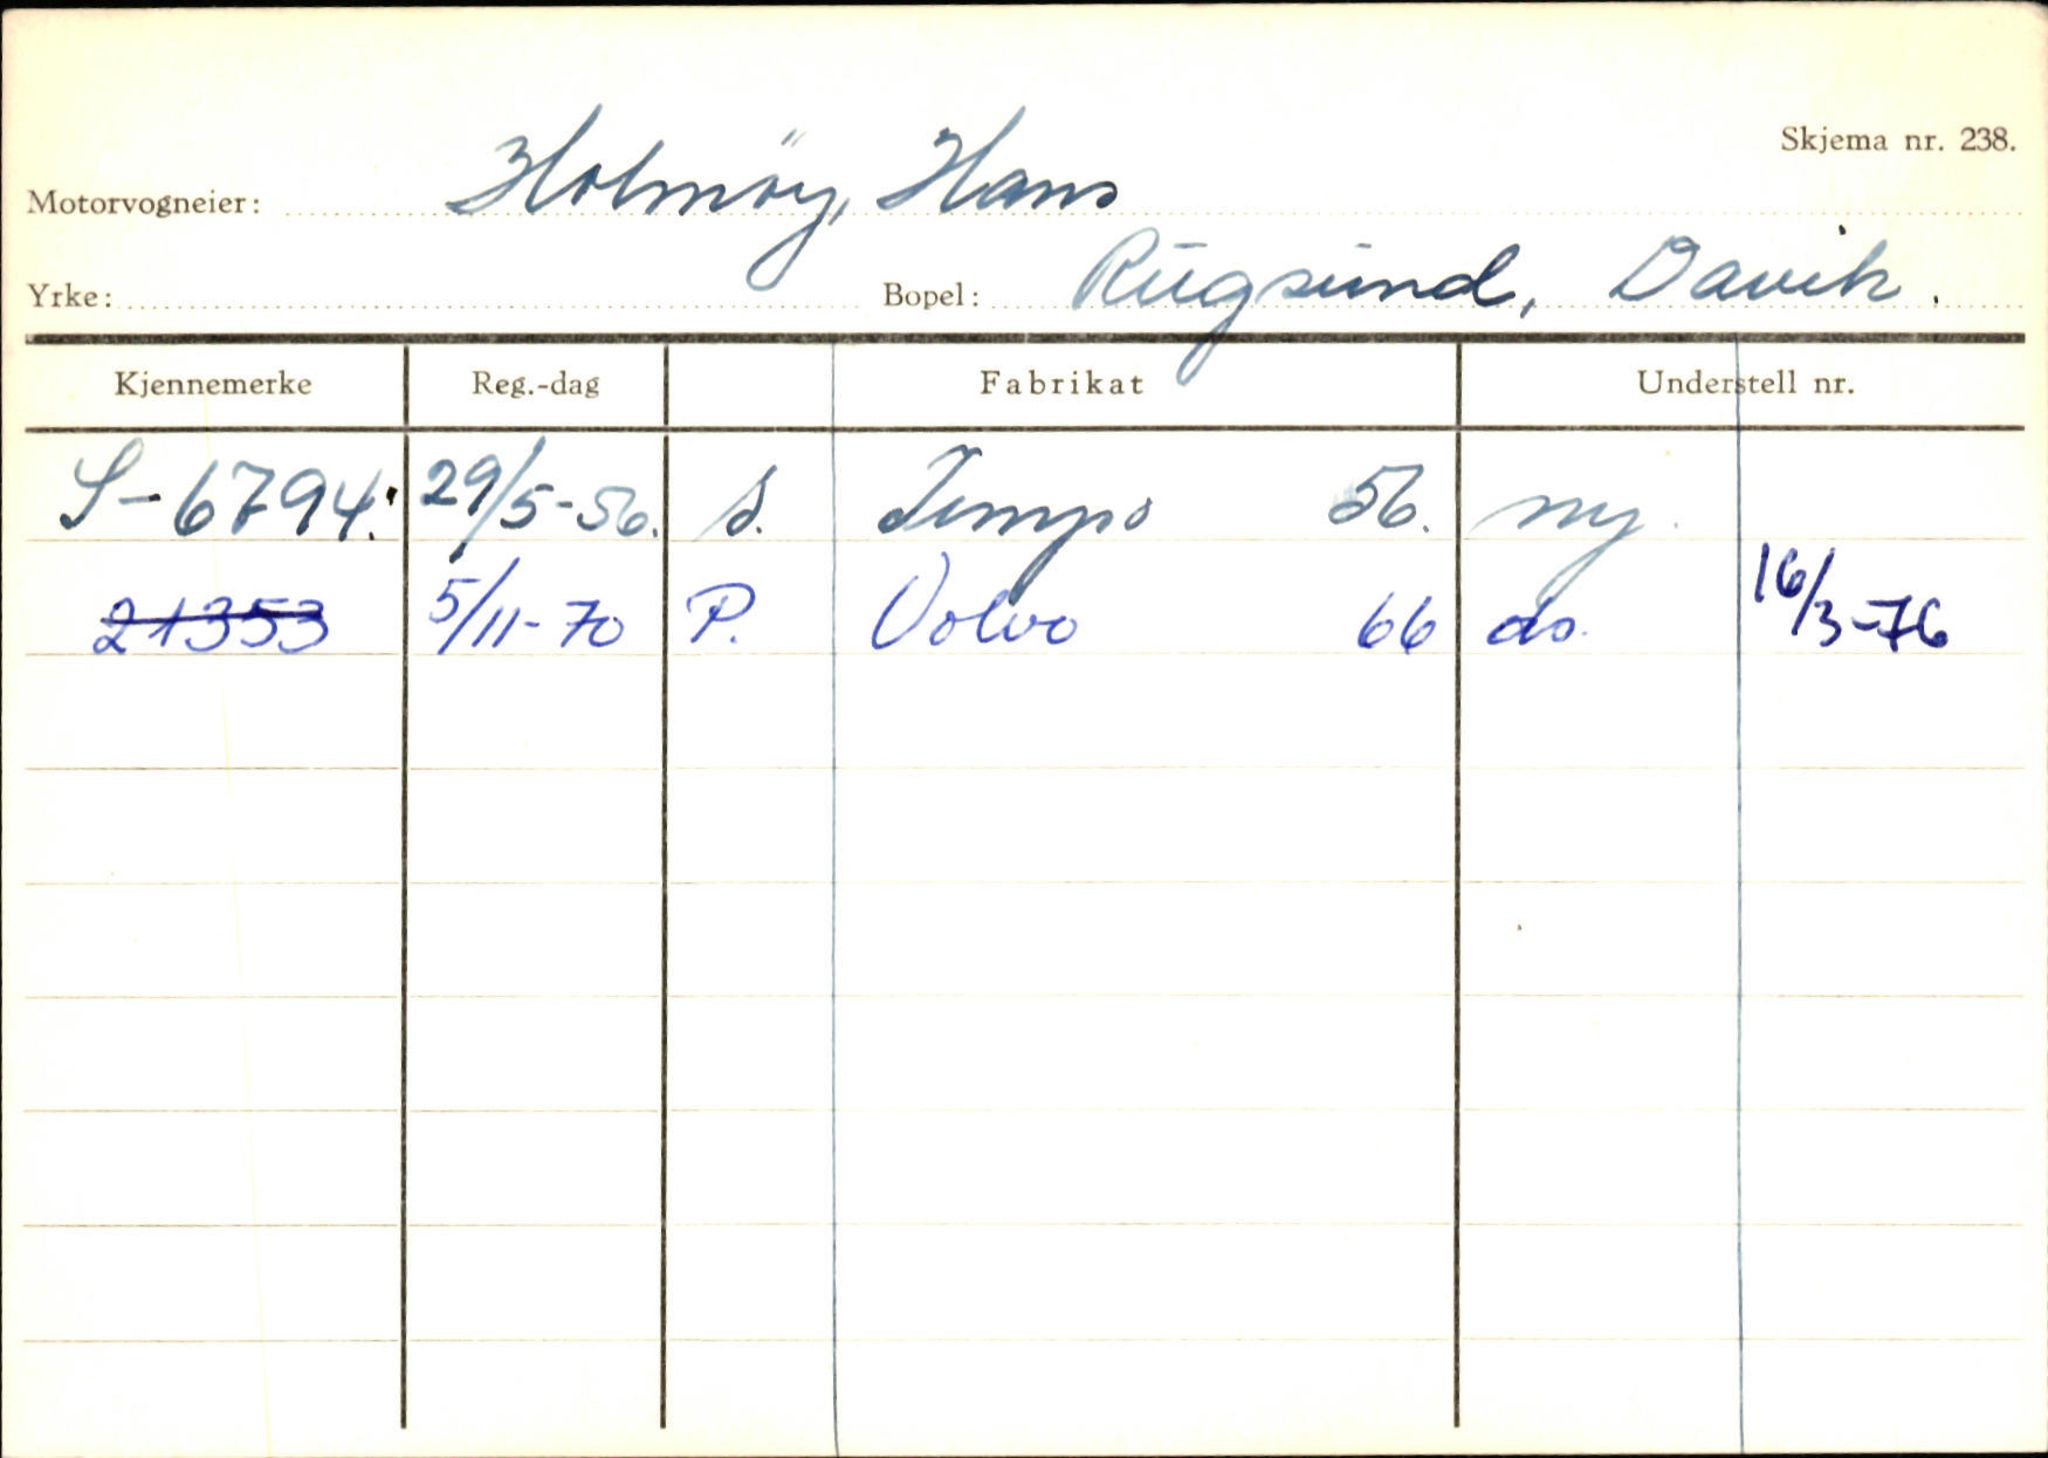 Skjema nr. 238.
Motorvogneier: Holmöy, Hans
Yrke: Bopel: Rugsund, Davik.
Kjennemerke Reg.-dag Fabrikat Understell nr.
S-6794. 29/5-56. s. Tempo 56. ny.
21353 5/11-70 P. Volvo 66 do. 16/3-76